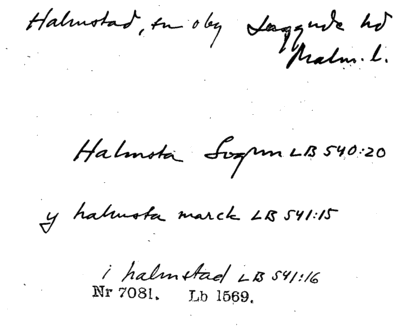 Halmstad, sn o by Luggude hd
Malm. l.
Halmsta Sognn LB 540:20
y halmsta marck LB 541:15
i halmstad LB 541:16
Nr 7081. Lb 1569.